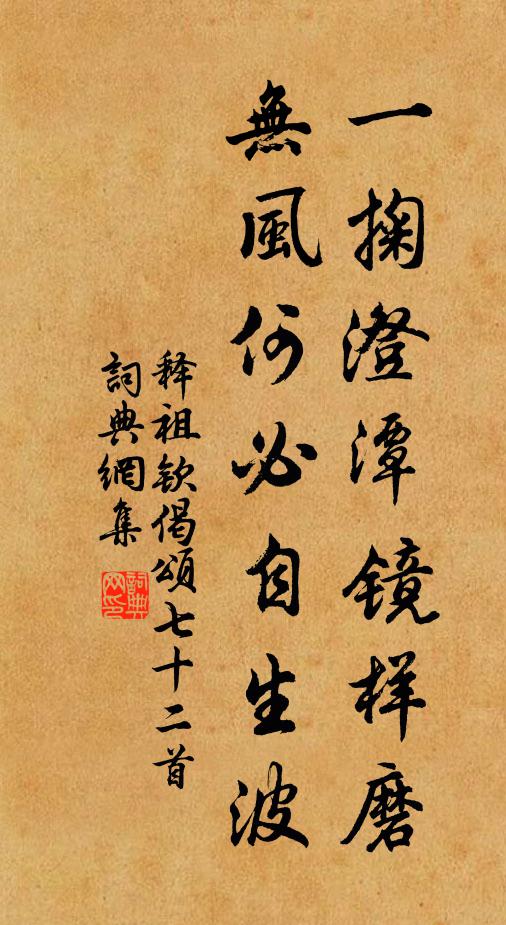 一掬澄潭镜样磨
無風何必自生波
释祖钦偈颂七十二首
詞典網集
詞典网印